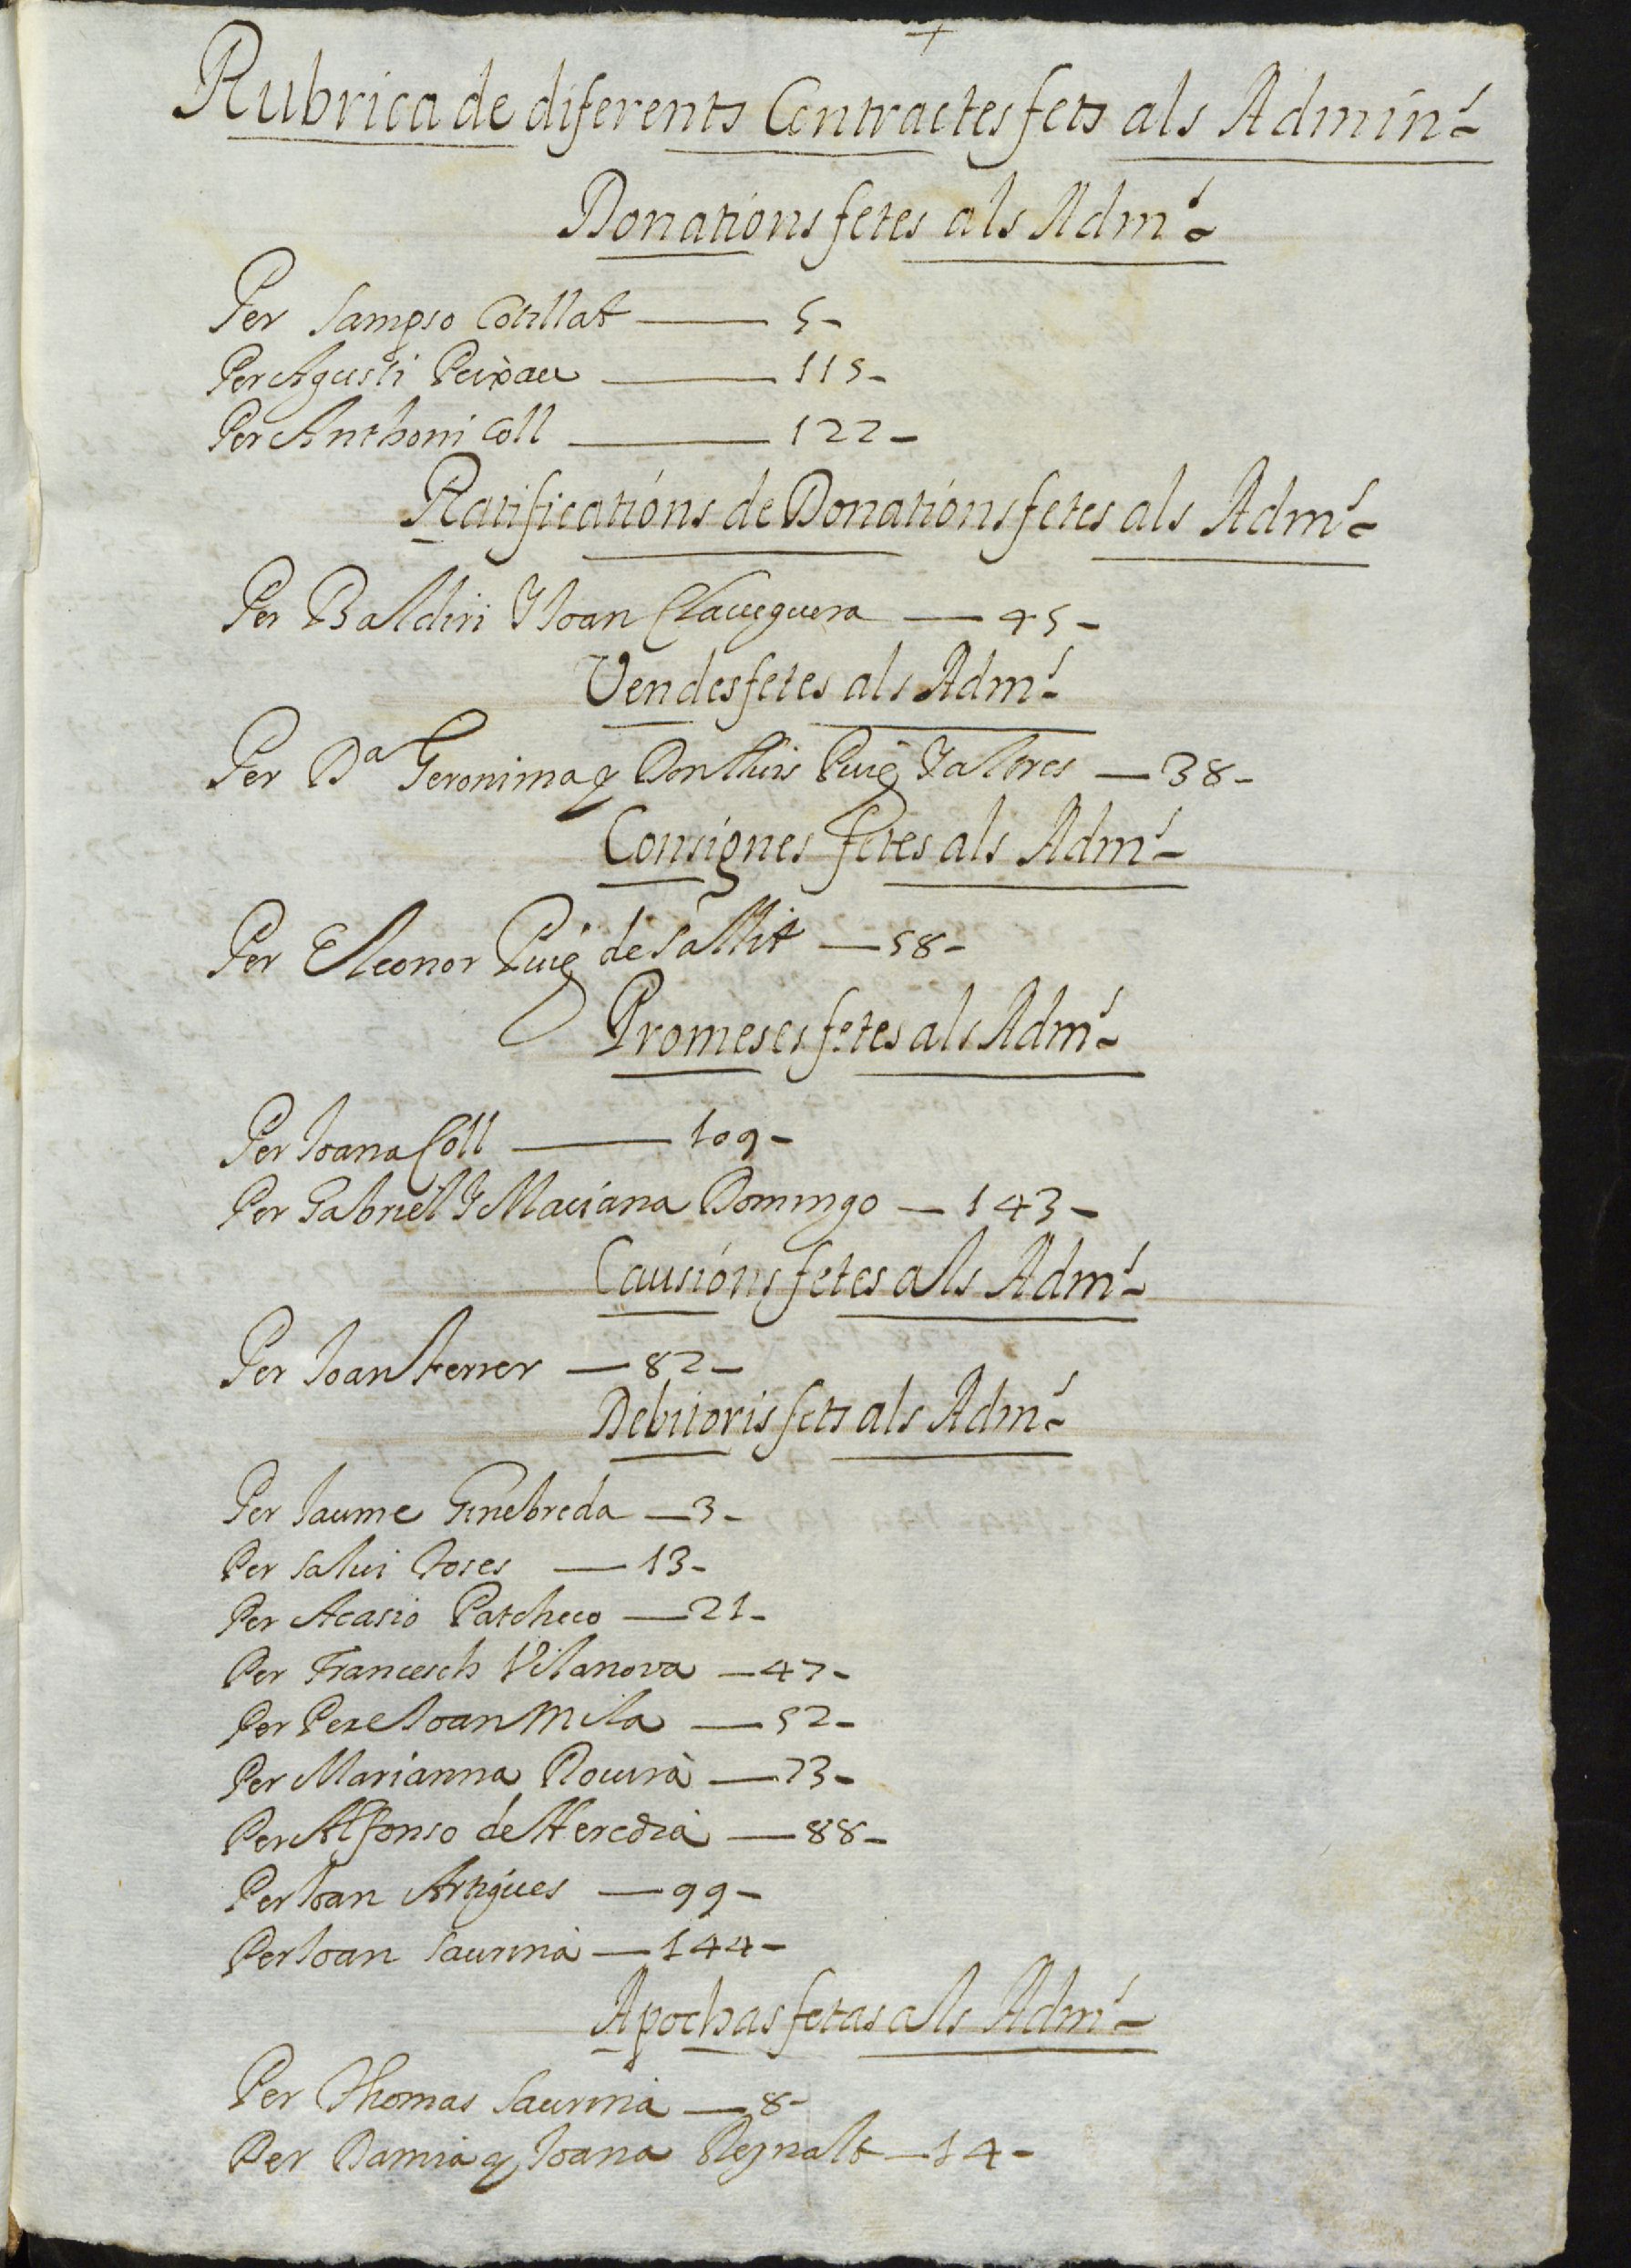 +
Rubrica de diferents Contractes fets als Admin.
Donations fetes als Adm.
Per Sampso Cotillat — 5-
Per Agusti Peixau — 115-
Per Anthoni Coll — 122-
Ratificatións de Donatións fetes als Adm.
Per Baldiri Y Joan Clavaguera — 45-
Vendes fetes als Adm.
Per Dª Geronima y Don Lluis Puig Y — 38-
Consignes fetes als Adm.
Per Eleonor Puig de Sallit — 58-
Promeses fetes als Adm.
Per Joana Coll — 109-
Per Gabriel Y Maciana Domingo — 143-
Causións fetes als Adm.
Per Joan Ferrer — 82-
Debitoris fets als Adm.
Per Jaume Ginebreda — 3-
Per Salvi Roses — 13-
Per Acasio Patcheco — 21-
Per Francesch Vilanova — 47-
Per Pere Joan Mila — 52-
Per Marianna Rovirà — 73-
Per Alfonso de Heredia — 88-
Per Joan Artigues — 99-
Per Joan Saurina — 144-
Apochas fetas als Adm.
Per Thomas Saurina — 8-
Per Damia y Joana Reynalt — 14-